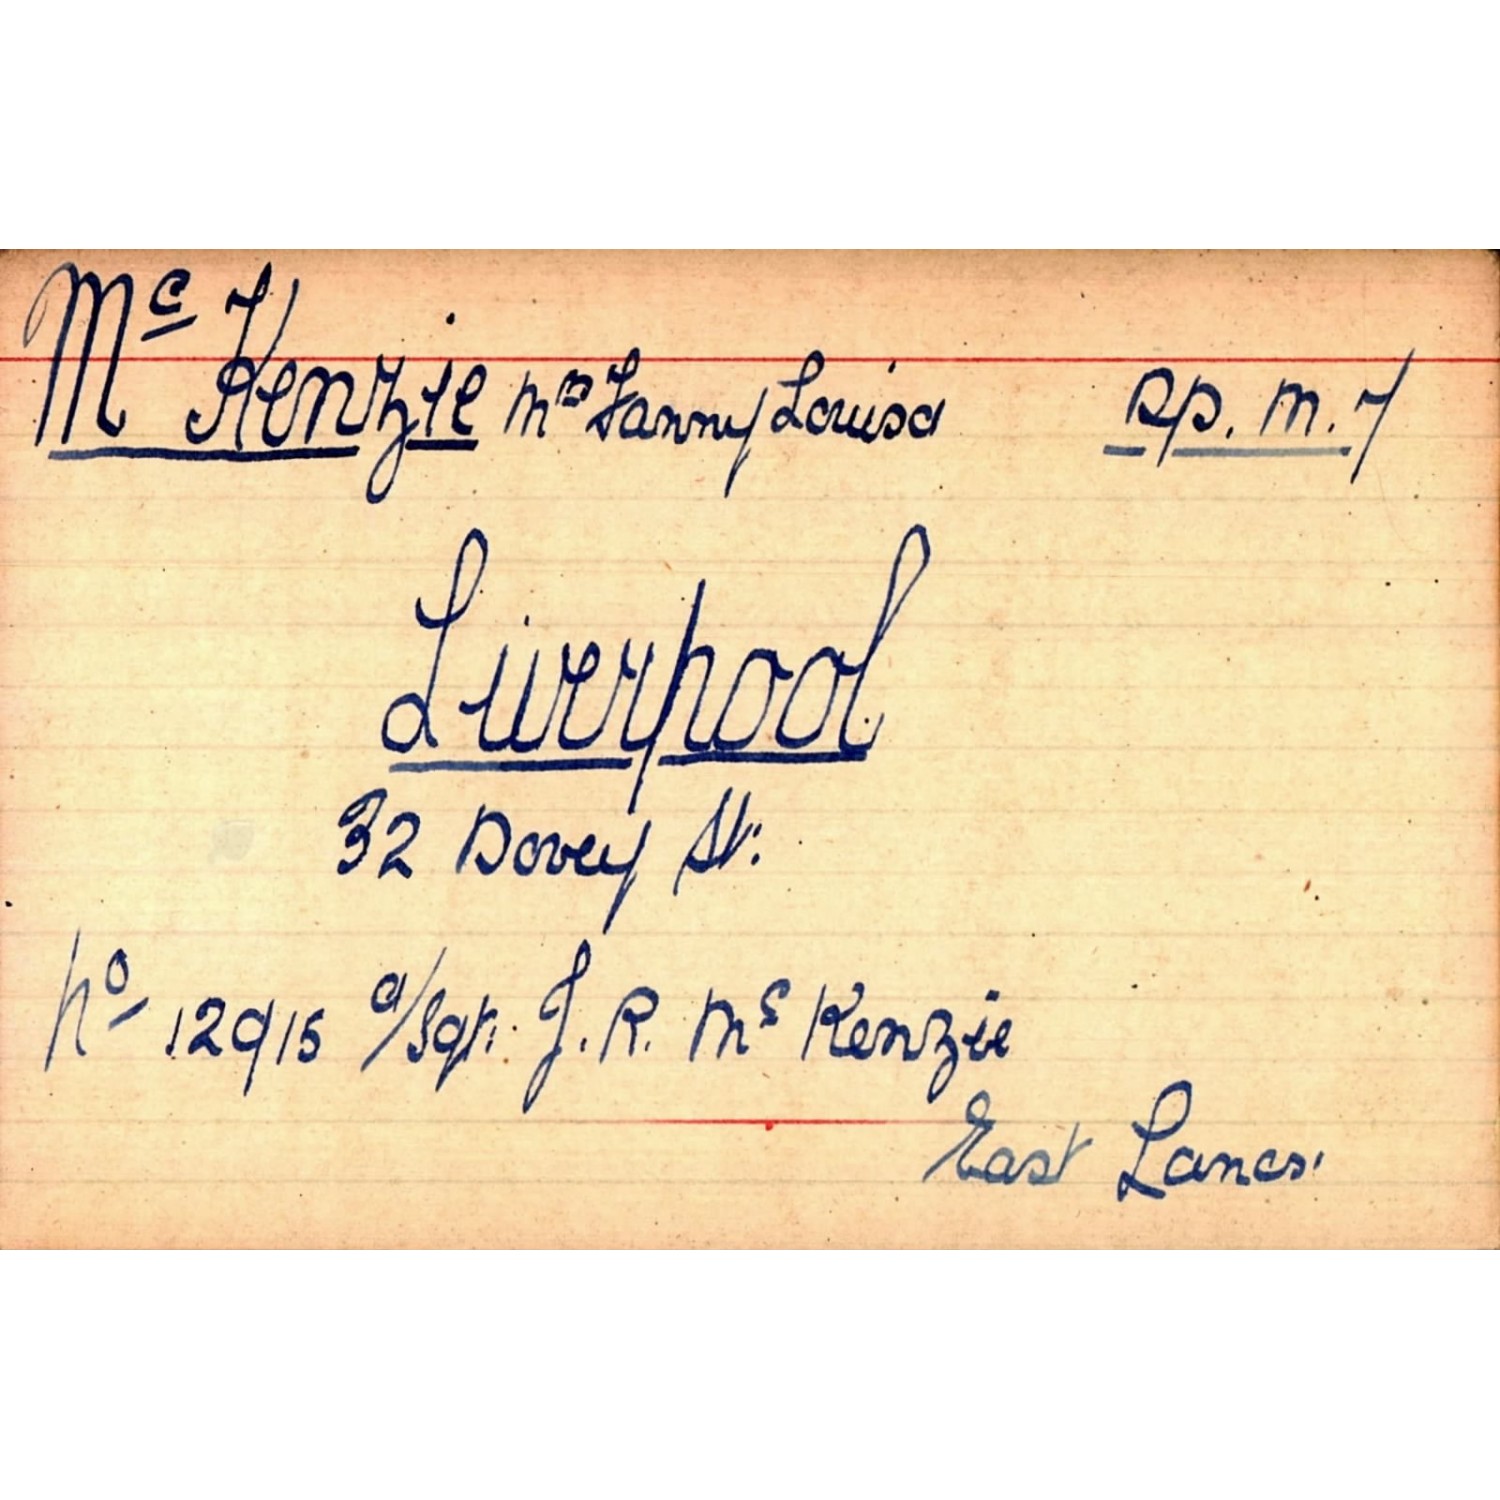 Mc Kenzie Mrs Fanny Louisa Sp. M. 7
Liverpool
32 Dovey St.
No 12915 a/Sgt. J. R. Mc Kenzie
East Lancs.